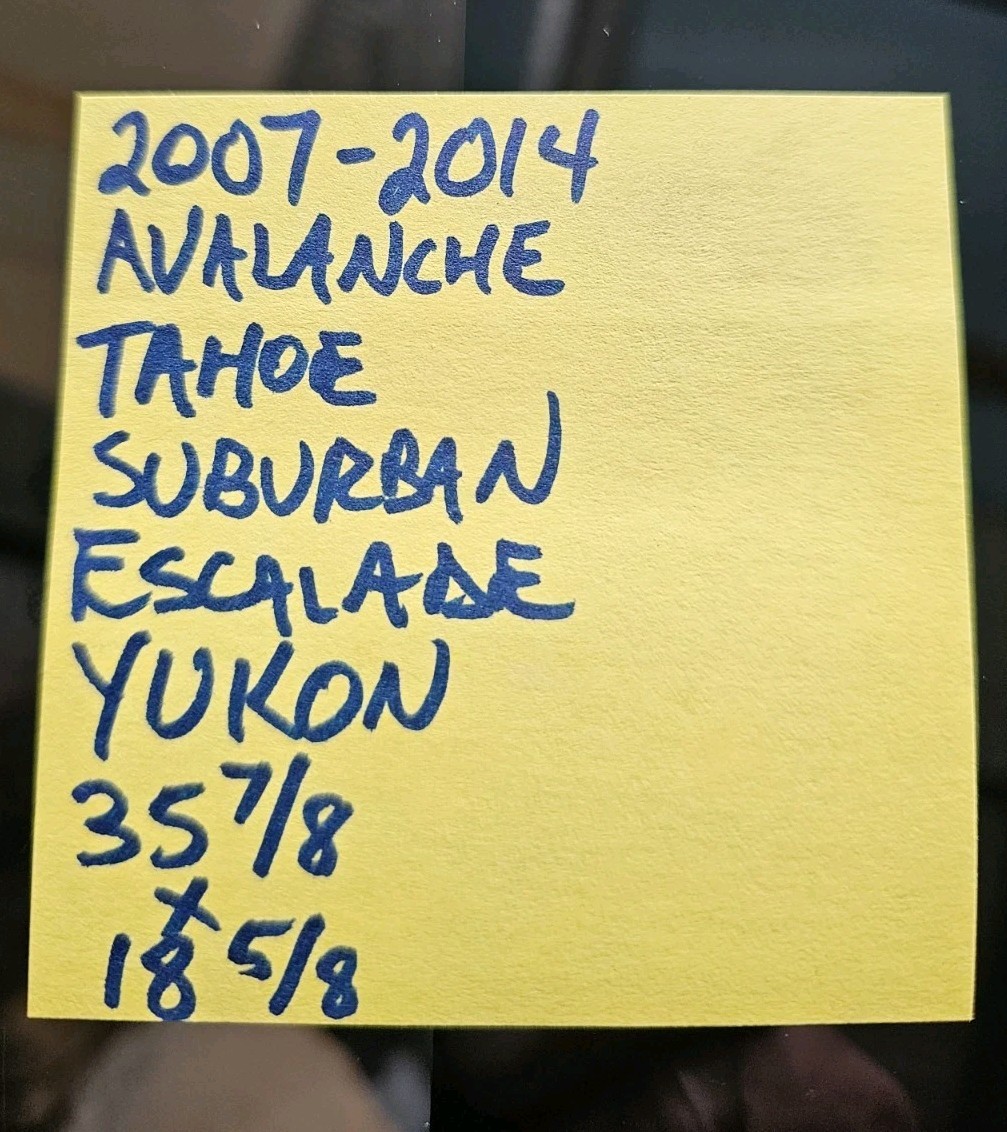 2007-2014
AVALANCHE
TAHOE
SUBURBAN
ESCALADE
YUKON
35 7/8
X
18 5/8